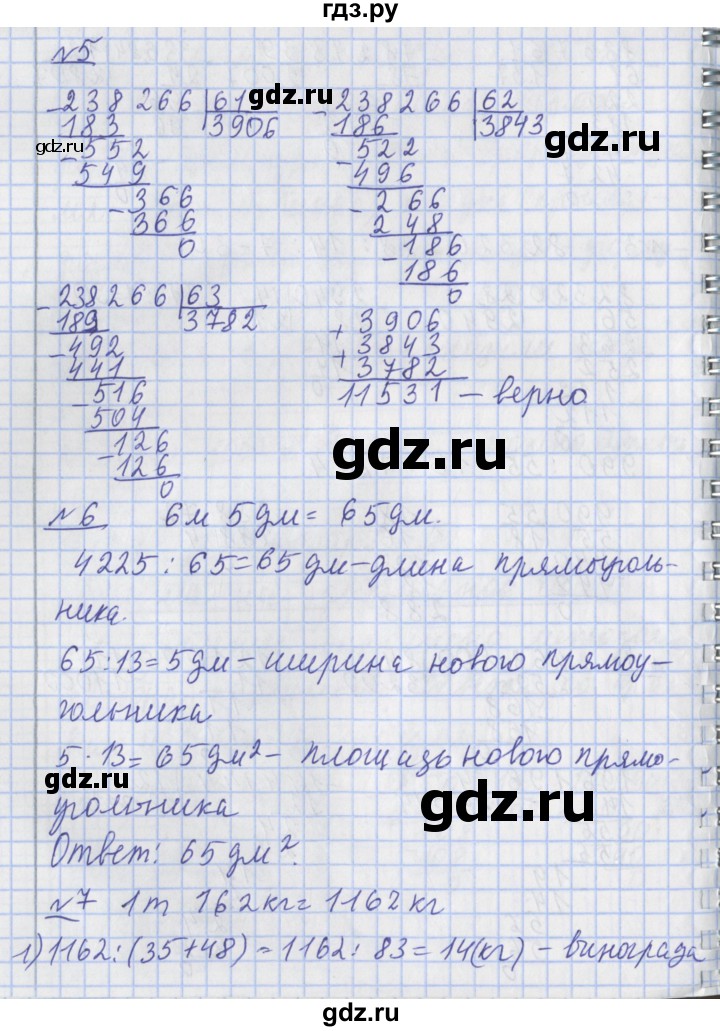 гдз.ру
№5
- 238 266 | 61 - 238266 | 62
183 3906 186 3843
- 552 - 522
549 496
- 366 - 266
366 248
0 - 186
186
0
- 238266 | 63
189 3782
- 492
441
- 516
504
- 126
126
0
+ 3906
+ 3843
3782
11531 – верно
№6 6м 5дм = 65дм.
4225 : 65 = 65 дм – длина прямоуголь-
ника.
65 : 13 = 5дм – ширина нового прямоу-
гольника
5 · 13 = 65 дм² – площадь нового прямо-
угольника
Ответ: 65 дм².
№7 1т 162кг = 1162 кг
1) 1162 : (35+48) = 1162 : 83 = 14(кг) – винограда
gdz.ru
gdz.ru
gdz.ru
gdz.ru
gdz.ru
gdz.ru
gdz.ru